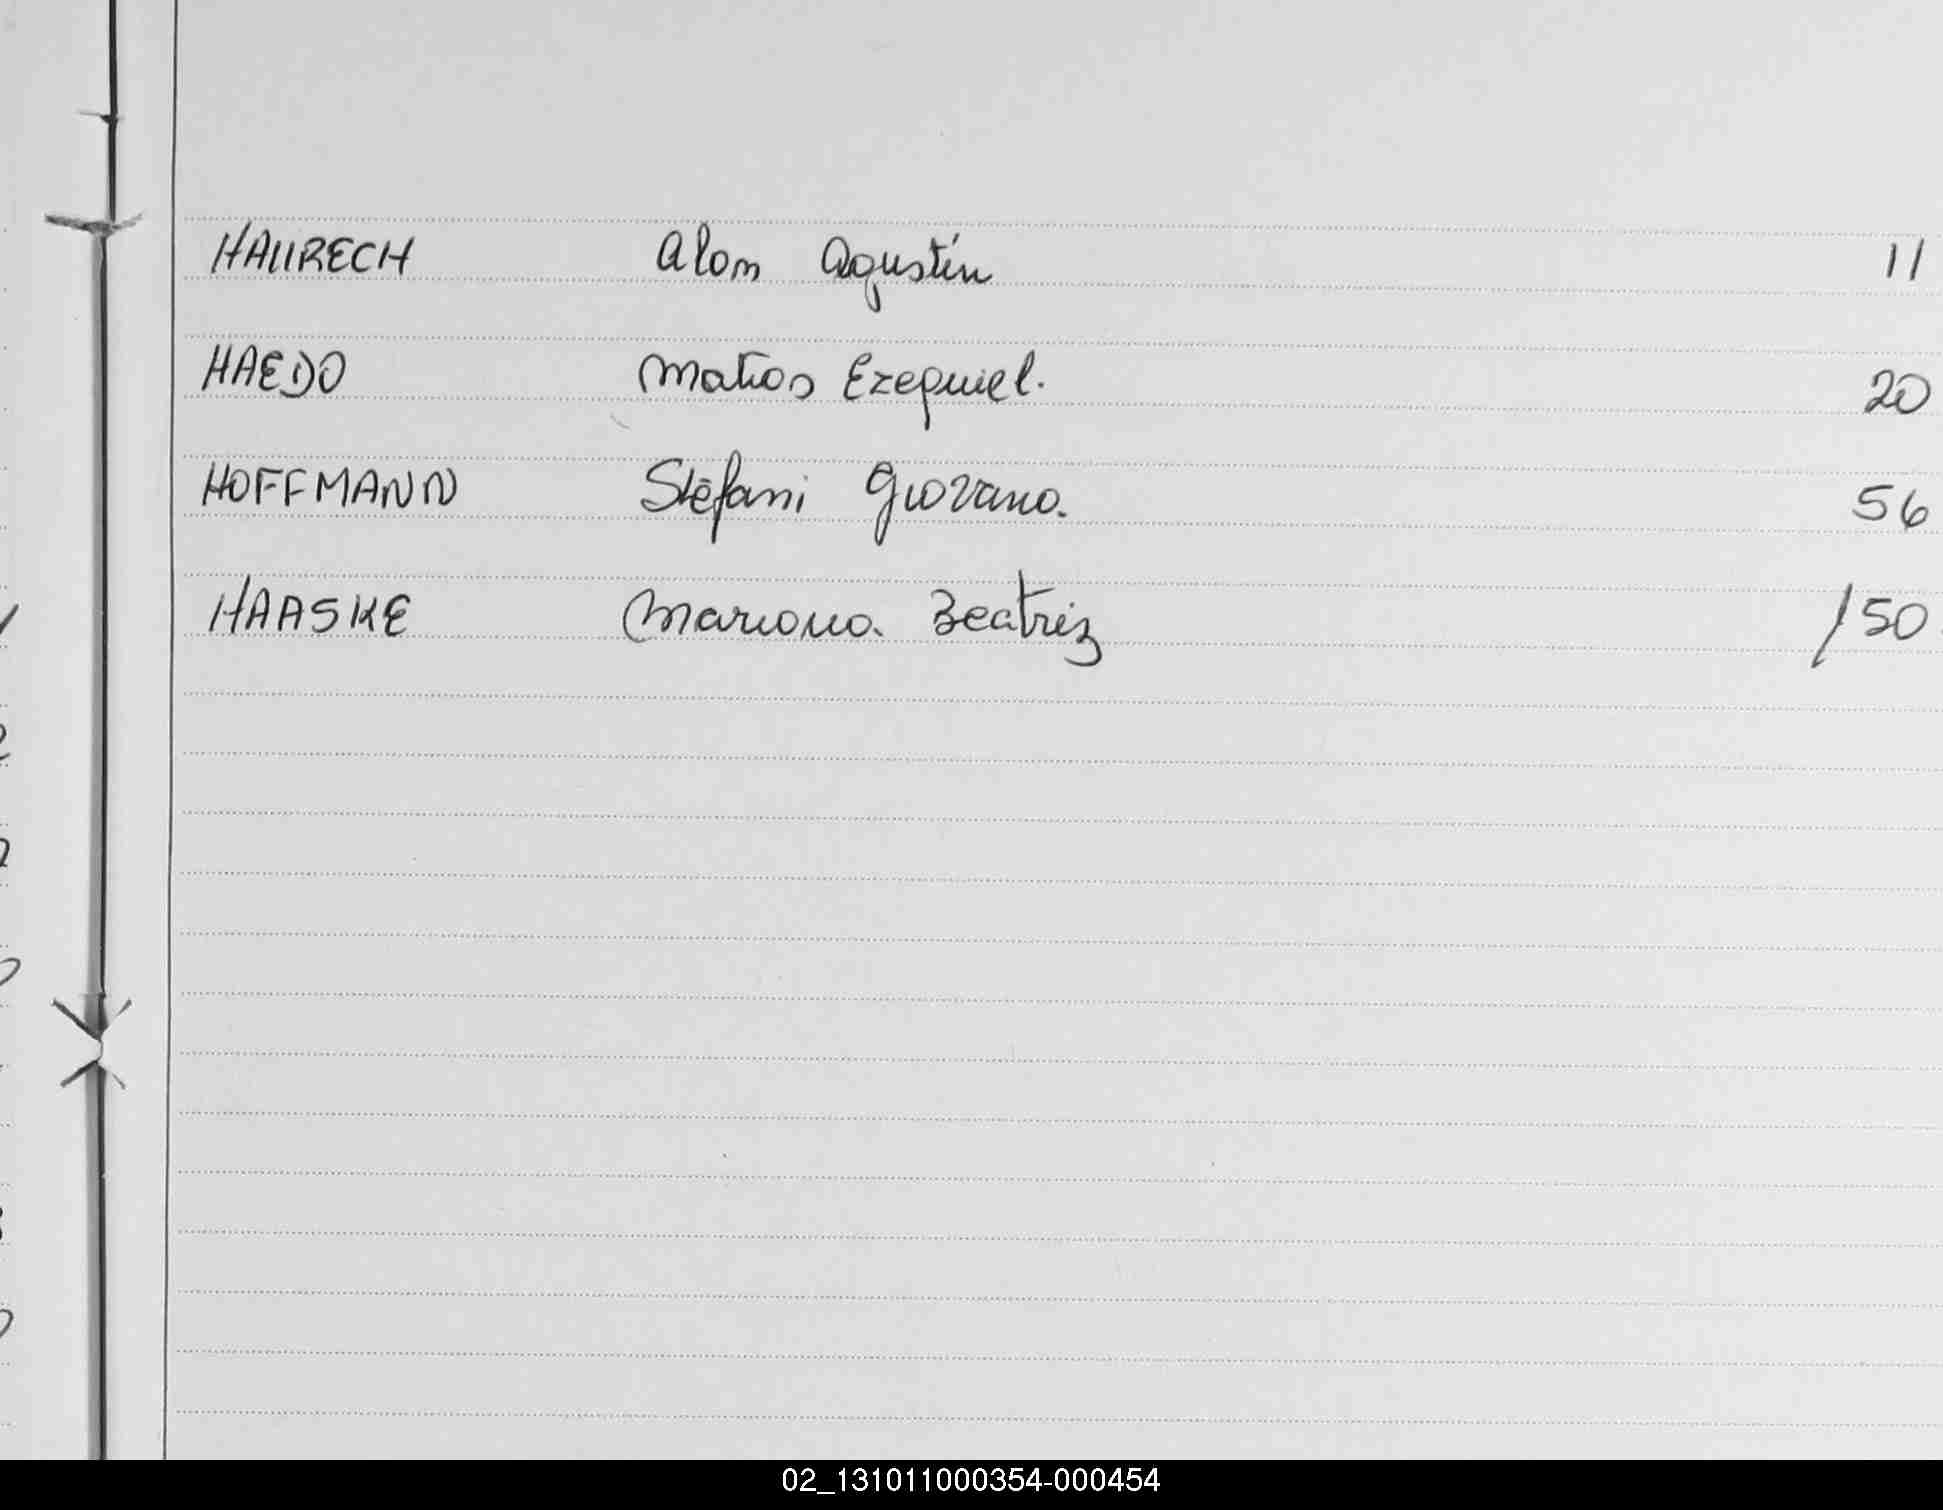 HAURECH Alan Agustín 11
HAEDO Matias Ezequiel. 20
HOFFMANN Stefani Giovana. 56
HAASKE Mariana Beatriz 150
02_131011000354-000454